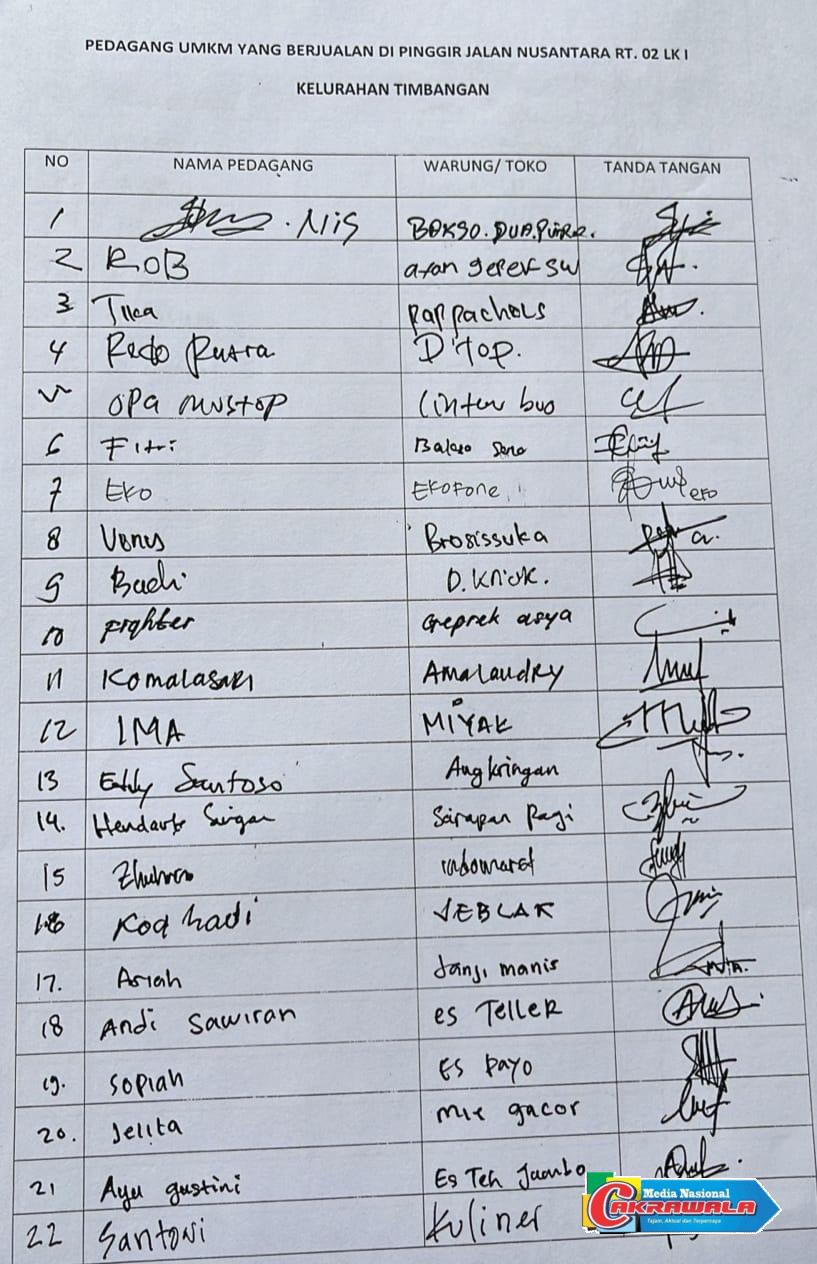 PEDAGANG UMKM YANG BERJUALAN DI PINGGIR JALAN NUSANTARA RT. 02 LK I
KELURAHAN TIMBANGAN
NO NAMA PEDAGANG WARUNG/ TOKO TANDA TANGAN
1 . Nis BAKSO. DUA.
2 ROB
3 Tika pappachols
4 Redo Putra D'Top.
5 opa nustop
6 Fitri
7 EKO EKOFONE eko
8 Venus Brosissuka
9 Badi D. Kriuk.
10 Fighter Geprek asya
11 Komalasari Amalaudry
12 IMA MiYAK
13 Eddy Santoso Angkringan
14. Sarapan Pagi
15 indomaret
16 Koq hadi SEBLAK
17. Asiah Janji manis
18 Andi Sawiran es TELLER
19. Sopiah Es payo
20. Jelita mie gacor
21 Ayu gustini Es Teh Jumbo
22 Santoni Kuliner
Media Nasional
CAKRAWALA
Tajam, Aktual dan Terpercaya